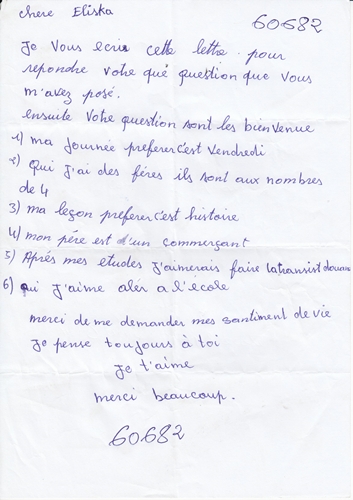 chere Eliska
60682
Je Vous ecris cette lettre pour
repondre votre qué question que Vous
m'avez posé.
ensuite Votre question sont les bienvenue
1) ma Journée preferer c'est Vendredi
2) Qui J'ai des féres ils sont aux nombres
de 4
3) ma leçon preferer c'est histoire
4) mon pére est d'un commerçant
5) Aprés mes etudes J'aimerais faire la transist douane
6) qui J'aime aler a l'ecole
merci de me demander mes santiment de vie
Je pense toujours à toi
Je t'aime
merci beaucoup.
60682